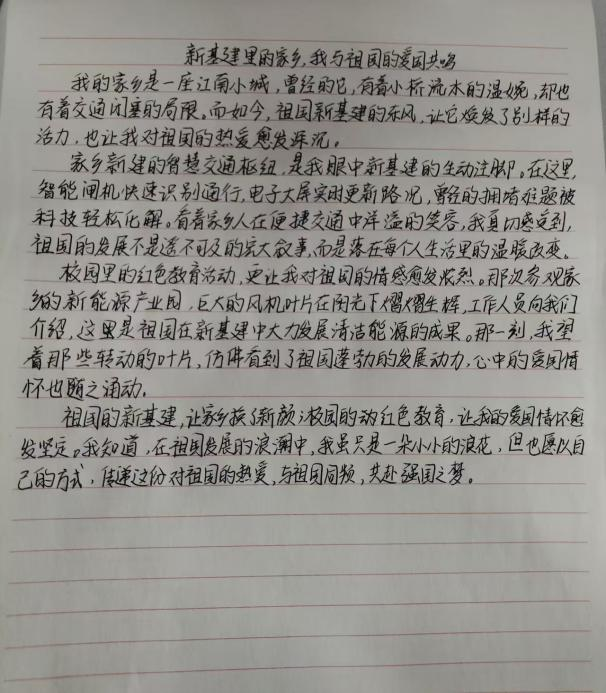 新基建里的家乡,我与祖国的爱国共鸣
我的家乡是一座江南小城,曾经的它,有着小桥流水的温婉,却也
有着交通闭塞的局限。而如今,祖国新基建的东风,让它焕发了别样的
活力,也让我对祖国的热爱愈发深沉。
家乡新建的智慧交通枢纽,是我眼中新基建的生动注脚。在这里,
智能闸机快速识别通行,电子大屏实时更新路况,曾经的拥堵难题被
科技轻松化解。看着家乡人在便捷交通中洋溢的笑容,我真切感受到,
祖国的发展不是遥不可及的宏大叙事,而是落在每个人生活里的温暖改变。
校园里的红色教育活动,更让我对祖国的情感愈发浓烈。那次参观家
乡的新能源产业园,巨大的风机叶片在阳光下熠熠生辉,工作人员向我们
介绍,这里是祖国在新基建中大力发展清洁能源的成果。那一刻,我望
着那些转动的叶片,仿佛看到了祖国蓬勃的发展动力,心中的爱国情
怀也随之涌动。
祖国的新基建,让家乡换了新颜;校园的动红色教育,让我的爱国情怀愈
发坚定。我知道,在祖国发展的浪潮中,我虽只是一朵小小的浪花,但也愿以自
己的方式,传递这份对祖国的热爱,与祖国同频,共赴强国之梦。